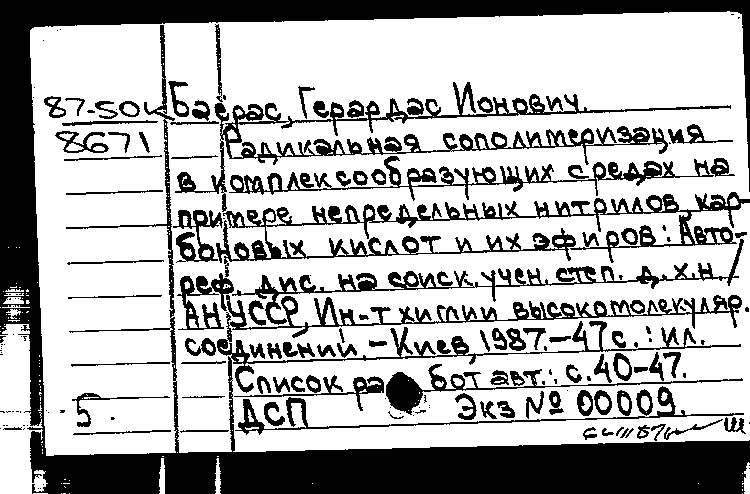 87-50к Баёрас, Герардас Ионович.
8671 Радикальная сополимеризация
в комплексообразующих средах на
примере непредельных нитрилов, кар-
боновых кислот и их эфиров: Авто-
реф. дис. на соиск. учен. степ. д.х.н./
АН УССР, Ин-т химии высокомолекуляр.
соединений. – Киев, 1987. – 47 с. : ил.
Список работ авт.: с. 40-47.
5. ДСП Экз № 00009.